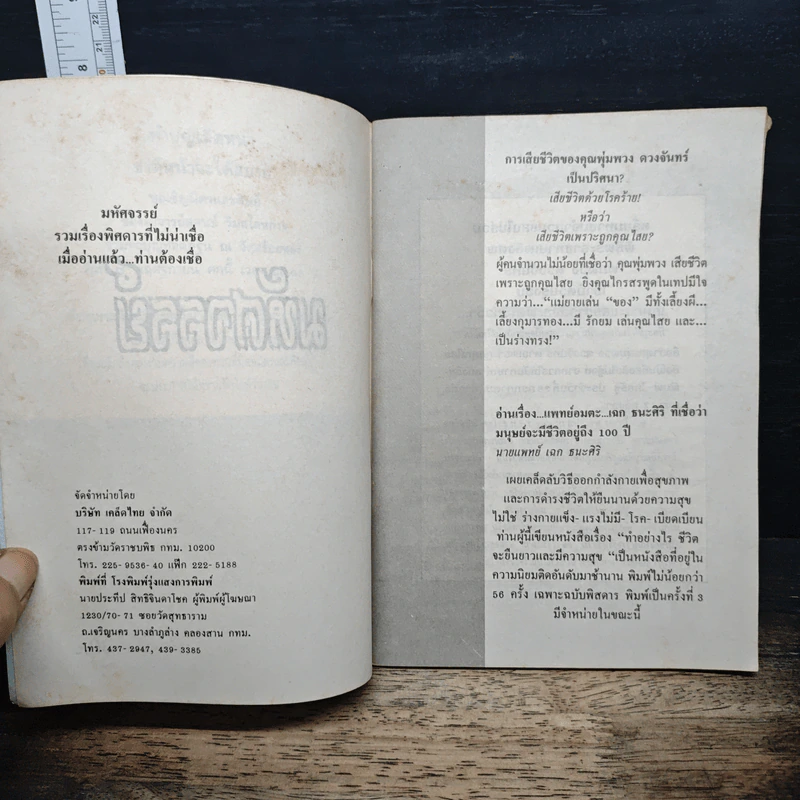 มหัศจรรย์
รวมเรื่องพิศดารที่ไม่น่าเชื่อ
เมื่ออ่านแล้ว...ท่านต้องเชื่อ
มหัศจรรย์
จัดจำหน่ายโดย
บริษัท เคล็ดไทย จำกัด
117-119 ถนนเฟื่องนคร
ตรงข้ามวัดราชบพิธ กทม. 10200
โทร. 225-9536-40 แฟ็ก 222-5188
พิมพ์ที่ โรงพิมพ์รุ่งแสงการพิมพ์
นายประทีป สิทธิจินดาโชค ผู้พิมพ์ผู้โฆษณา
1230/70-71 ซอยวัดสุทธาราม
ถ.เจริญนคร บางลำภูล่าง คลองสาน กทม.
โทร. 437-2947, 439-3385
การเสียชีวิตของคุณพุ่มพวง ดวงจันทร์
เป็นปริศนา?
เสียชีวิตด้วยโรคร้าย!
หรือว่า
เสียชีวิตเพราะถูกคุณไสย?
ผู้คนจำนวนไม่น้อยที่เชื่อว่า คุณพุ่มพวง เสียชีวิต
เพราะถูกคุณไสย ยิ่งคุณไกรสรพูดในเทปมีใจ
ความว่า...“แม่ยายเล่น “ของ” มีทั้งเลี้ยงผี...
เลี้ยงกุมารทอง...มี รักยม เล่นคุณไสย และ...
เป็นร่างทรง!”
อ่านเรื่อง...แพทย์อมตะ...เฉก ธนะศิริ ที่เชื่อว่า
มนุษย์จะมีชีวิตอยู่ถึง 100 ปี
นายแพทย์ เฉก ธนะศิริ
เผยเคล็ดลับวิธีออกกำลังกายเพื่อสุขภาพ
และการดำรงชีวิตให้ยืนนานด้วยความสุข
ไม่ใช่ ร่างกายแข็ง- แรงไม่มี- โรค- เบียดเบียน
ท่านผู้นี้เขียนหนังสือเรื่อง “ทำอย่างไร ชีวิต
จะยืนยาวและมีความสุข “เป็นหนังสือที่อยู่ใน
ความนิยมติดอันดับมาช้านาน พิมพ์ไม่น้อยกว่า
56 ครั้ง เฉพาะฉบับพิสดาร พิมพ์เป็นครั้งที่ 3
มีจำหน่ายในขณะนี้